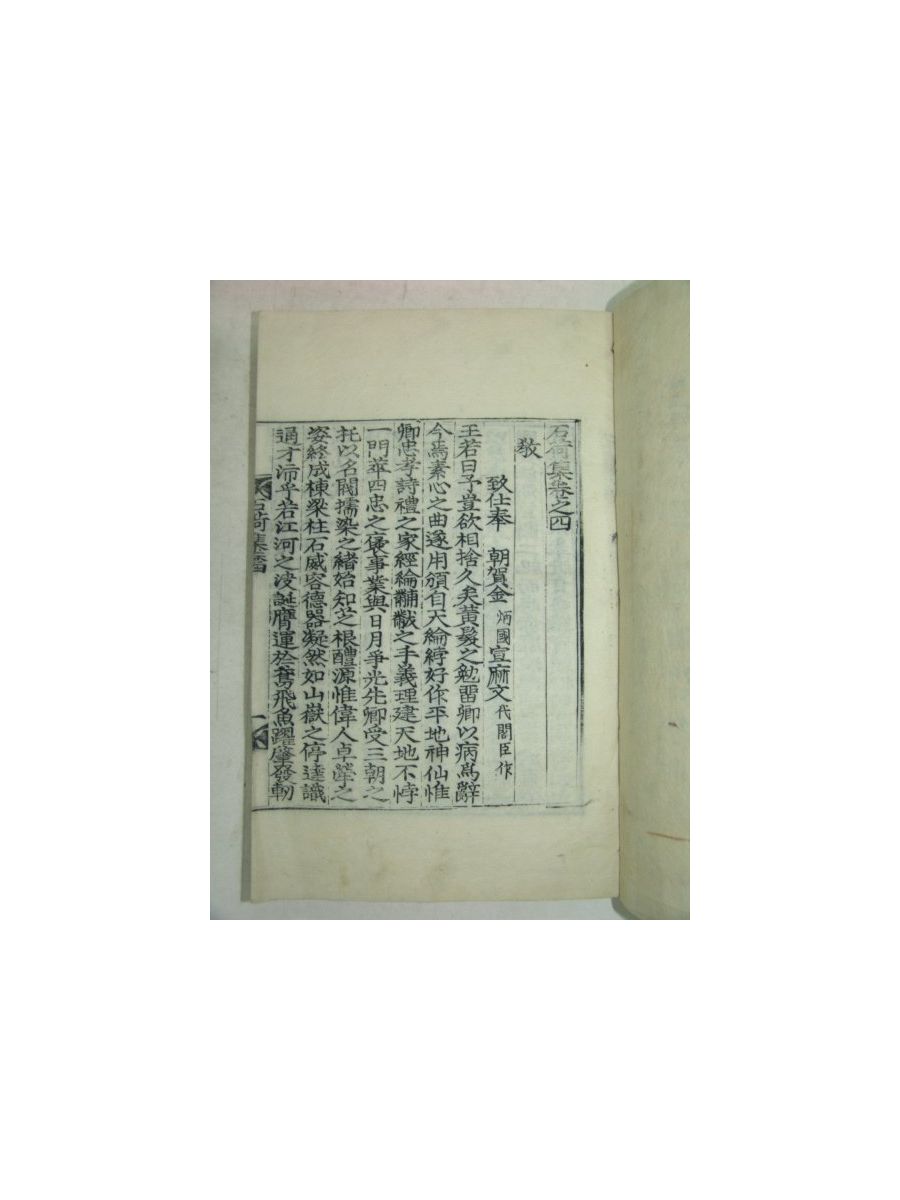 石荷集卷之四
敎
致仕奉 朝賀金炳國宣麻文代閣臣作
王若曰予豈欲相捨久矣黃髮之勉留卿以病爲辭
今焉素心之曲遂用頒自天綸綍好作平地神仙惟
卿忠孝詩禮之家經綸黼黻之手義理建天地不悖
一門萃四忠之褒事業與日月爭光先卿受三朝之
托以名閥擩染之緖始知芝根醴源惟偉人卓犖之
姿終成棟梁柱石威容德器凝然如山嶽之停達識
通才沛乎若江河之決誕膺運於鳶飛魚躍肇發軔
石荷集 卷四 一